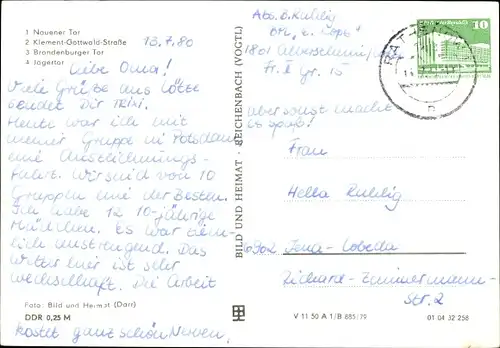 1 Nauener Tor
2 Klement-Gottwald-Straße
3 Brandenburger Tor
4 Jägertor
13.7.80
Liebe Oma!
Viele Grüße aus Götte
sendet Dir
Heute war ich mit
meiner Gruppe in Potsdam
eine Auszeichnungs-
fahrt. Wir sind von 10
Gruppen eine der Besten.
Ich habe 12 10-jährige
Mädchen. Es war ziem-
lich anstrengend. Das
Wetter hier ist sehr
wechselhaft. Die Arbeit
Foto: Bild und Heimat (Darr)
DDR 0,25 M
kostet ganz schön Nerven,
BILD UND HEIMAT REICHENBACH (VOGTL)
Abs. B. Ruhlig
1801
Gr. 15
aber sonst macht
es Spaß!
10
Frau
Hella Ruhlig
6902 Jena-Lobeda
Richard-Zimmermann-
Str. 2
V 11 50 A 1/B 885/79 01 04 32 258